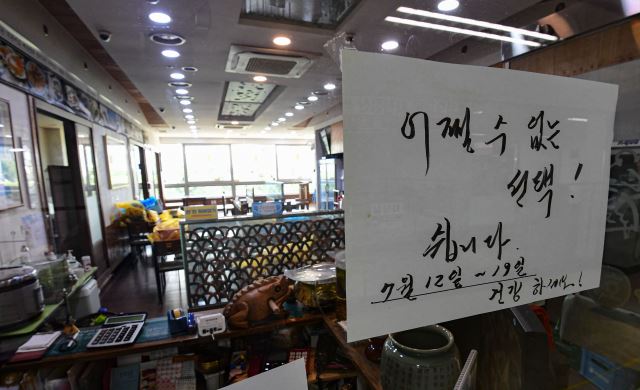 어쩔 수 없는
선택!
쉽니다.
7월 12일 ~ 19일
건강 하세요!